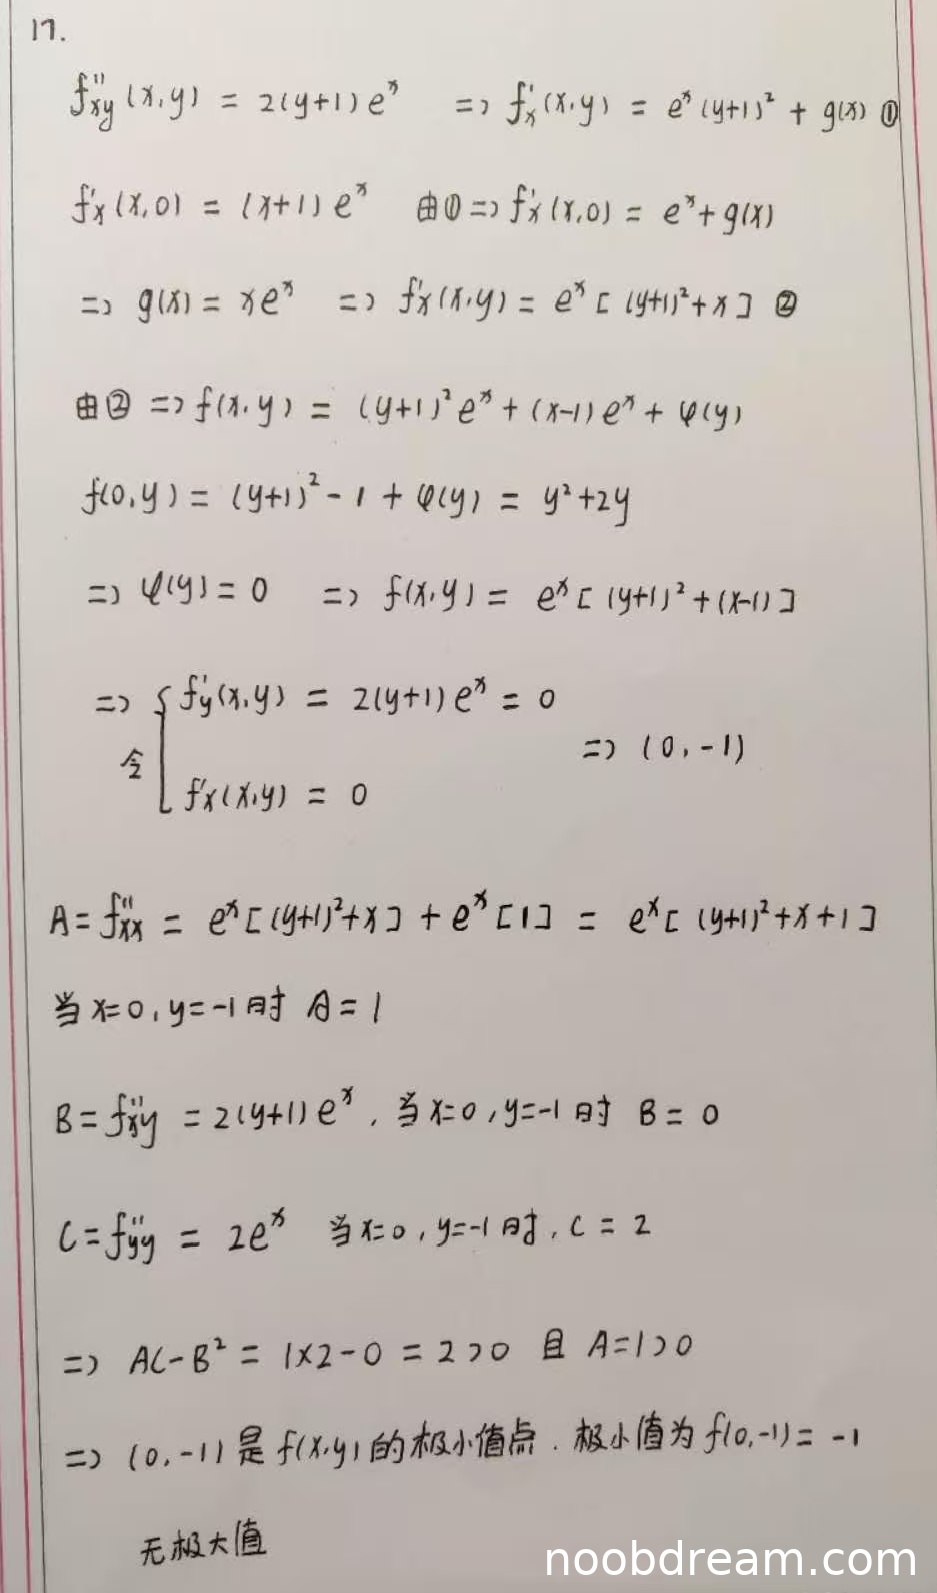 17.
f''xy(x,y) = 2(y+1)e^x => f'x(x,y) = e^x(y+1)² + g(x) ①
f'x(x,0) = (x+1)e^x 由①=> f'x(x,0) = e^x+g(x)
=> g(x) = xe^x => f'x(x,y) = e^x[(y+1)²+x] ②
由② => f(x,y) = (y+1)²e^x + (x-1)e^x + φ(y)
f(0,y) = (y+1)² - 1 + φ(y) = y²+2y
=> φ(y) = 0 => f(x,y) = e^x[(y+1)²+(x-1)]
=> { f'y(x,y) = 2(y+1)e^x = 0
令 => (0,-1)
f'x(x,y) = 0
A = f''xx = e^x[(y+1)²+x] + e^x[1] = e^x[(y+1)²+x+1]
当x=0,y=-1时 A=1
B = f''xy = 2(y+1)e^x, 当x=0,y=-1时 B = 0
C = f''yy = 2e^x 当x=0,y=-1时, C = 2
=> AC-B² = 1×2-0 = 2>0 且 A=1>0
=> (0,-1)是f(x,y)的极小值点. 极小值为f(0,-1) = -1
无极大值
noobdream.com